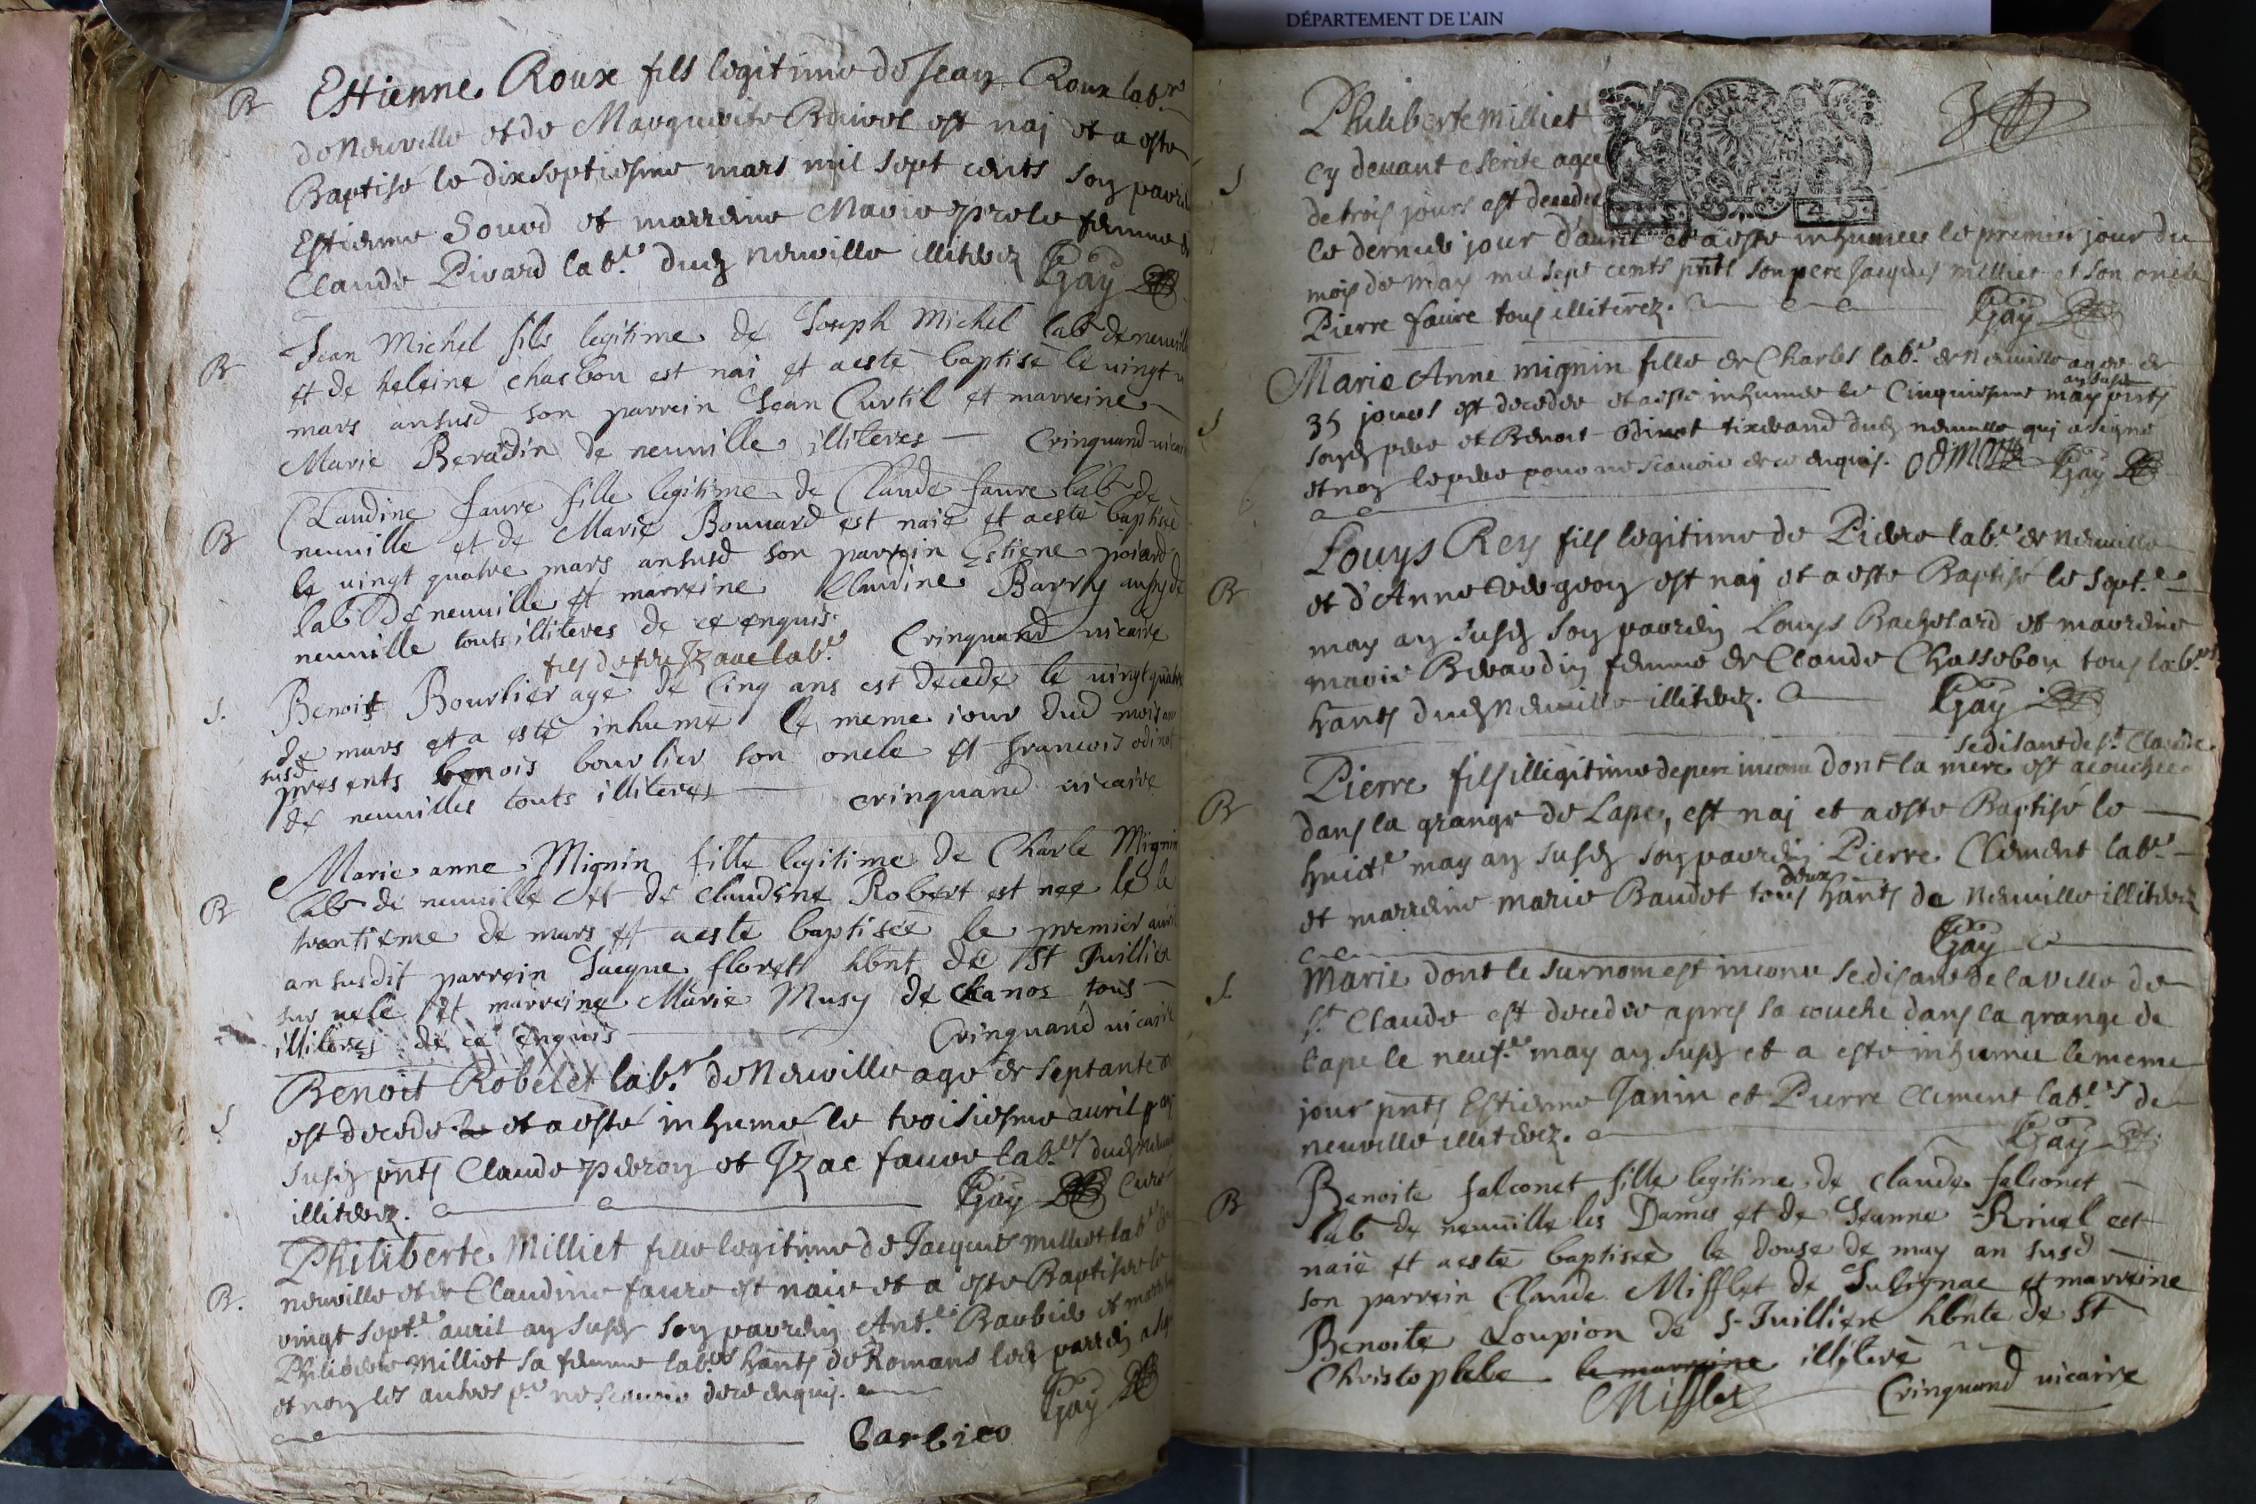 DÉPARTEMENT DE L'AIN
B Estienne Roux fils legitime de Jean Roux labr
de Neuville et de Marguerite Brivet est nai et a este
Baptisé le dixseptiesme mars mil sept cents son parrein
Estienne Souvd et marreine Marie prele femme de
Claude Pivard labr dud neuville illiterez Gay
B Jean Michel fils legitime de Joseph Michel lab de neuville
et de heleine chasbou est nai et aesté baptisé le vingt
mars ansusd son parrein Jean Curtil et marreine
Marie Beradin de neuville illiteres Crinquand vicaire
B Claudine faure fille legitime de Claude faure lab de
neuville et de Marie Bonnard est naie et aesté baptisée
le vingt quatre mars ansusd son parrein Estiene poiard
lab de neuville et marreine Claudine Barry aussy de
neuville touts illiteres de ce enquis. Crinquand vicaire
fils de feu Jzaac labr
S. Benoist Bourlier agé de Cinq ans est decedé le vingt quatre
de mars et a esté inhumé le meme iour dud mois an
susd
presents benois bourlier son oncle et francois odinot
de neuvilles touts illiteres crinquand vicaire
B Marie anne Mignin fille legitime de Charle Mignin
lab de neuville et de claudine Robert est nee le
trantieme de mars et aesté baptisée le premier avril
an susdit parrein Jacque floret hbnt de St Juillien
sur vele et marreine Marie Musy de chanoz tous
illiteres de ce enquis Crinquand vicaire
S Benoit Robelet labr de Neuville age de septante
est decede et a esté inhumé le troisiesme avril an
susd pnts Claude peron et Jzac faure labrs dud Neuville
illiterez. Gay Curé
B. Philiberte Milliet fille legitime de Jacques milliet labr
neuville et de Claudine faure est naie et a este Baptisee le
vingt septe avril an susd son parrein Ant. Barbier et marreine
Philiberte Milliet sa femme labrs hants de Romans led parrein a signé
et non les autres pr ne scavoir de ce enquis. Gay
barbier
S Philiberte milliet
cy devant escrite agee
de trois jours est decedee
le dernier jour d'avril et a este inhumee le premier jour du
mois de may mil sept cents pnts son pere Jacques milliet et son oncle
Pierre faure tous illiterez. Gay
S Marie Anne mignin fille de Charles labr de Neuville agee de
an susd
35 jours est decedee et a este inhumee le Cinquiesme may pnts
sond pere et Benoit Odinot tixerand dud neuville qui a signé
et non le pere pour ne scavoir de ce enquis. odinot Gay
B Louys Rey fils legitime de Pierre labr de neuville
et d'Anne Vergeon est nai et a este Baptisé le septe
may an susd son parrein Louys Bachelard et marreine
marie Beraudin femme de Claude Chassebou tous labrs
hants dud Neuville illiterez. Gay
se disant de st Claude
B Pierre fils illigitime de pere inconu dont la mere est acouchee
dans la grange de Lape, est nai et a este Baptisé le
huicte may an susd son parrein Pierre Clement labr
deux
et marreine marie Baudet tous hants de Neuville illiterez
Gay
S. Marie dont le surnom est inconu se disant de la ville de
st Claude est decedee apres sa couche dans la grange de
lape le neufe may an susd et a este inhumee le meme
jour pnts Estienne Janin et Pierre Clement labrs de
neuville illiterez. Gay
B Benoite falconet fille legitime de claude falconet
lab de neuville les Dames et de Jeanne Rivel est
naie et aesté baptisée le douse de may an susd
son parrein Claude Mifflet de Sulignac et marreine
Benoite Loupion de S Juillien hbnte de St
Christophle le marreine illiteré
Mifflet Crinquand vicaire